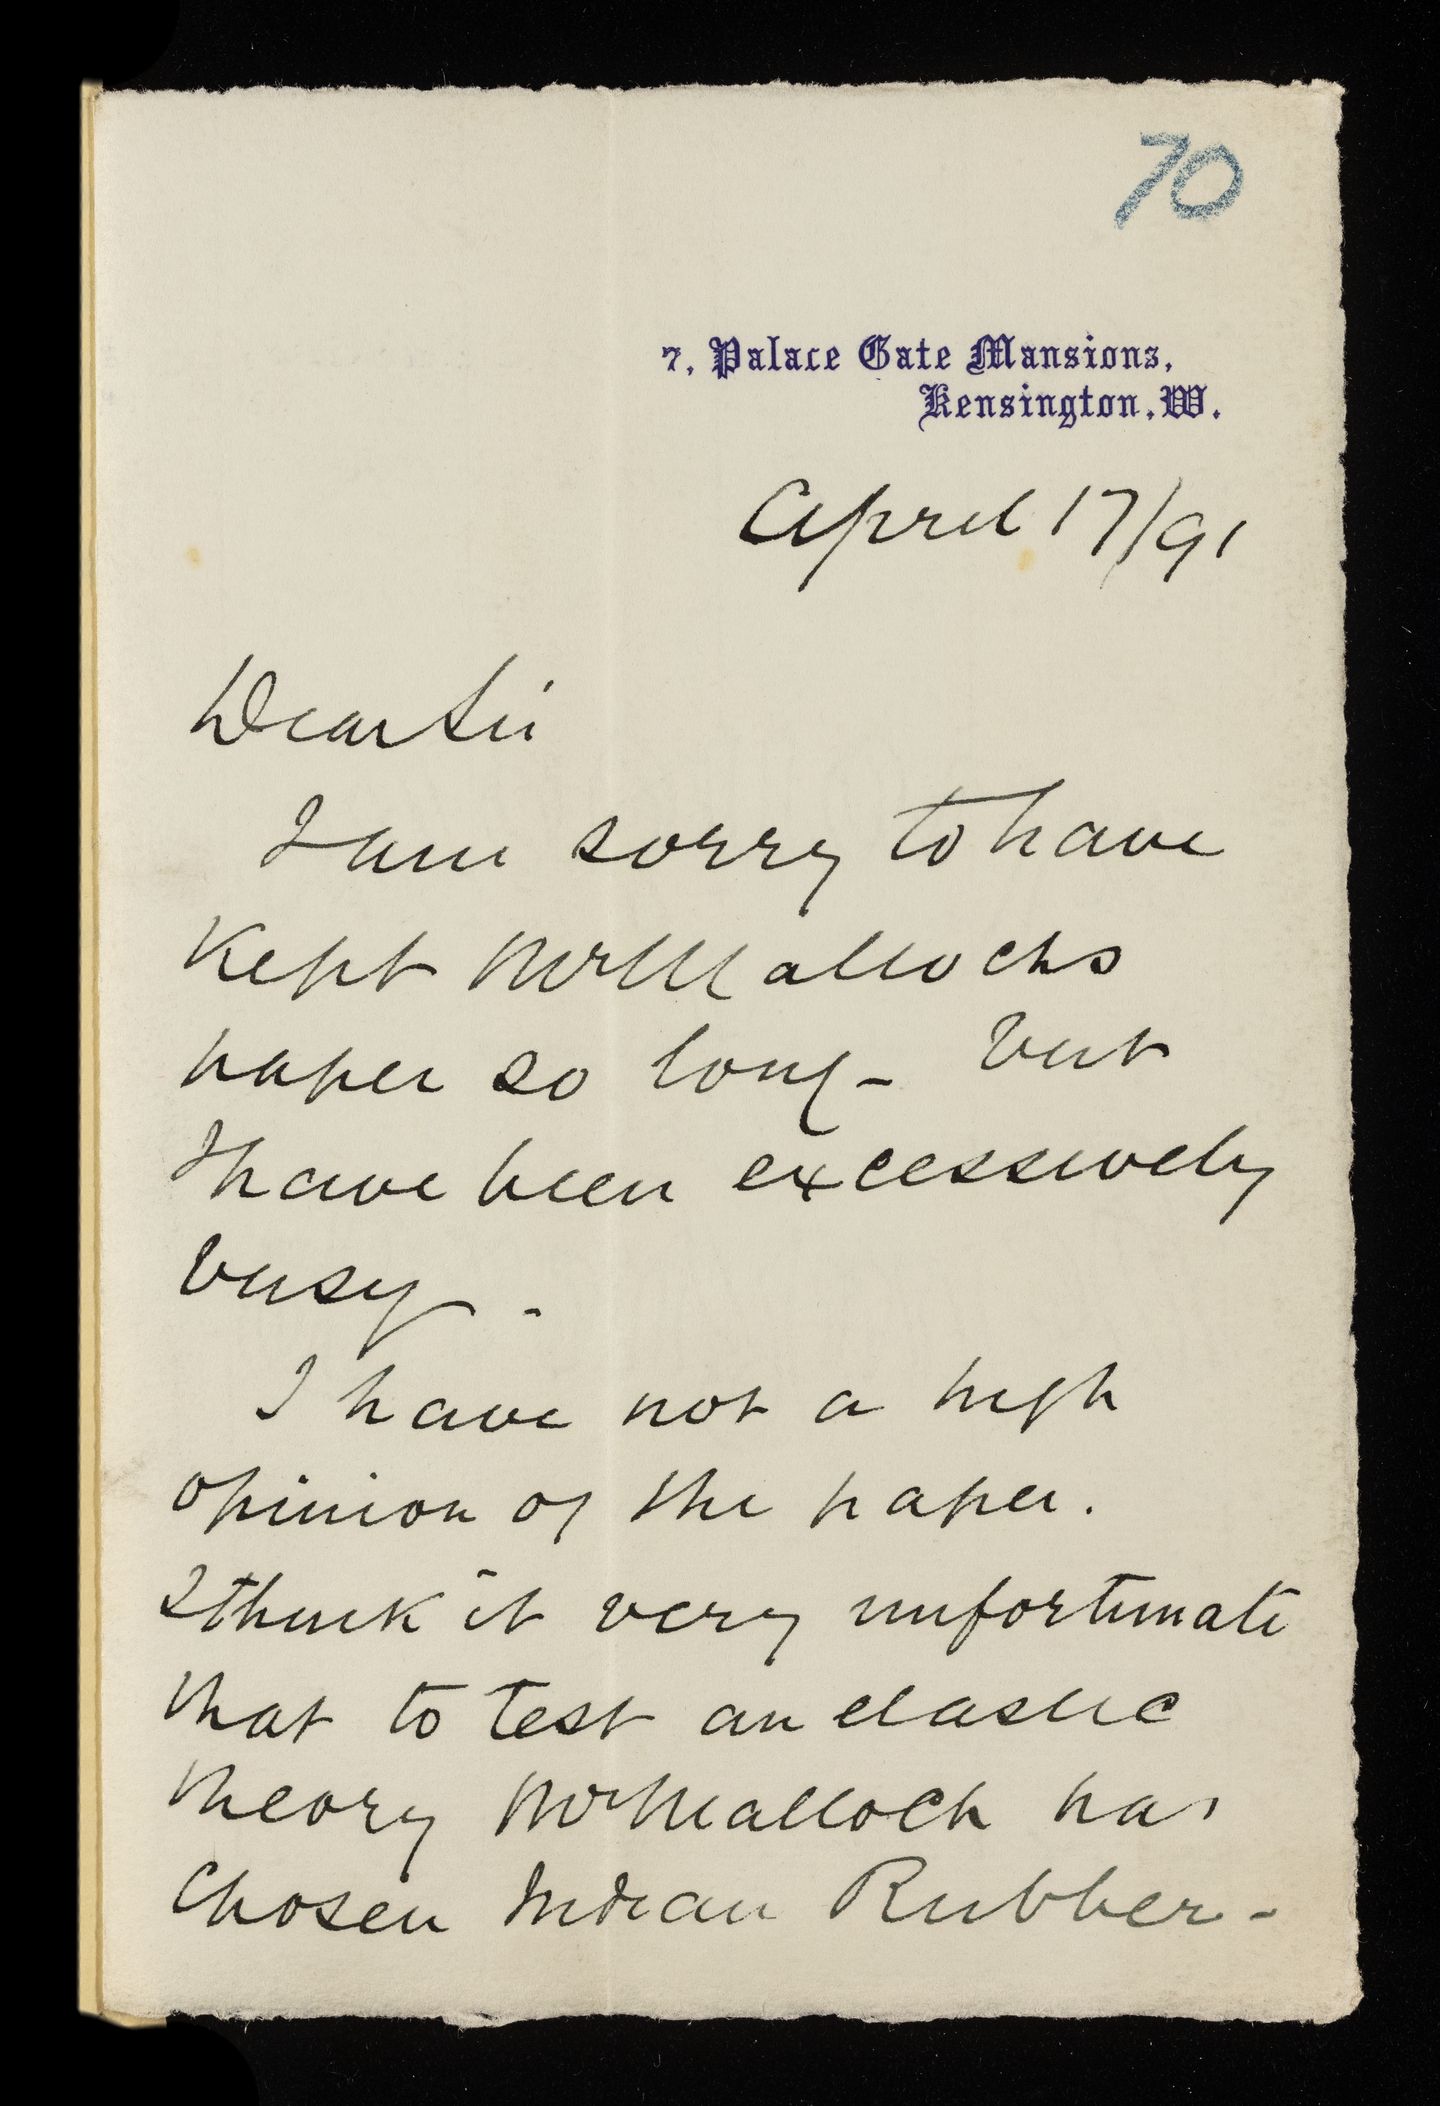 70
7, Palace Gate Mansions,
Kensington, W.
April 17/91
Dear Sir
I am sorry to have
kept Mr Mallochs
paper so long - but
I have been excessively
busy -
I have not a high
opinion of the paper.
I think it very unfortunate
that to test an elastic
theory Mr Malloch has
chosen Indian Rubber -